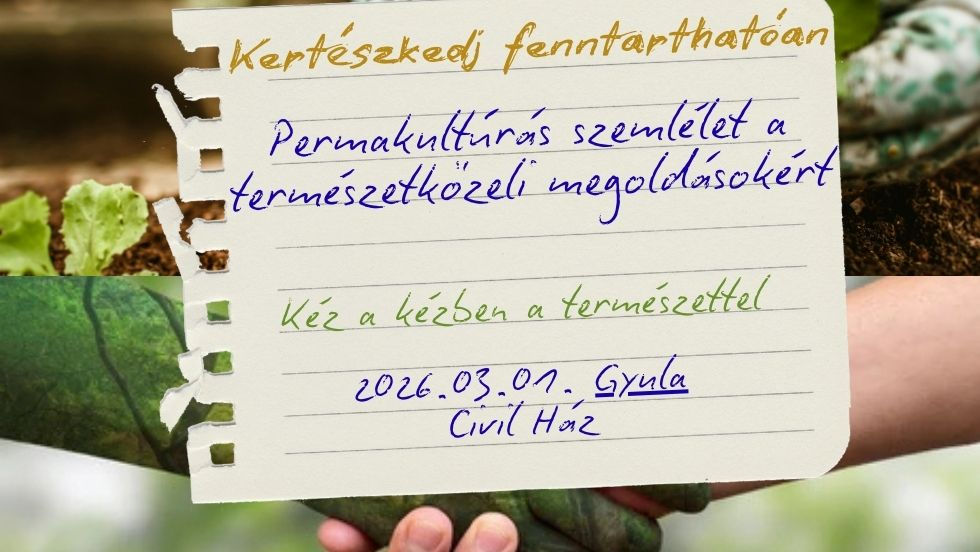 Kertészkedj fenntarthatóan
Permakultúrás szemlélet a
természetközeli megoldásokért
Kéz a kézben a természettel
2026.03.01. Gyula
Civil Ház